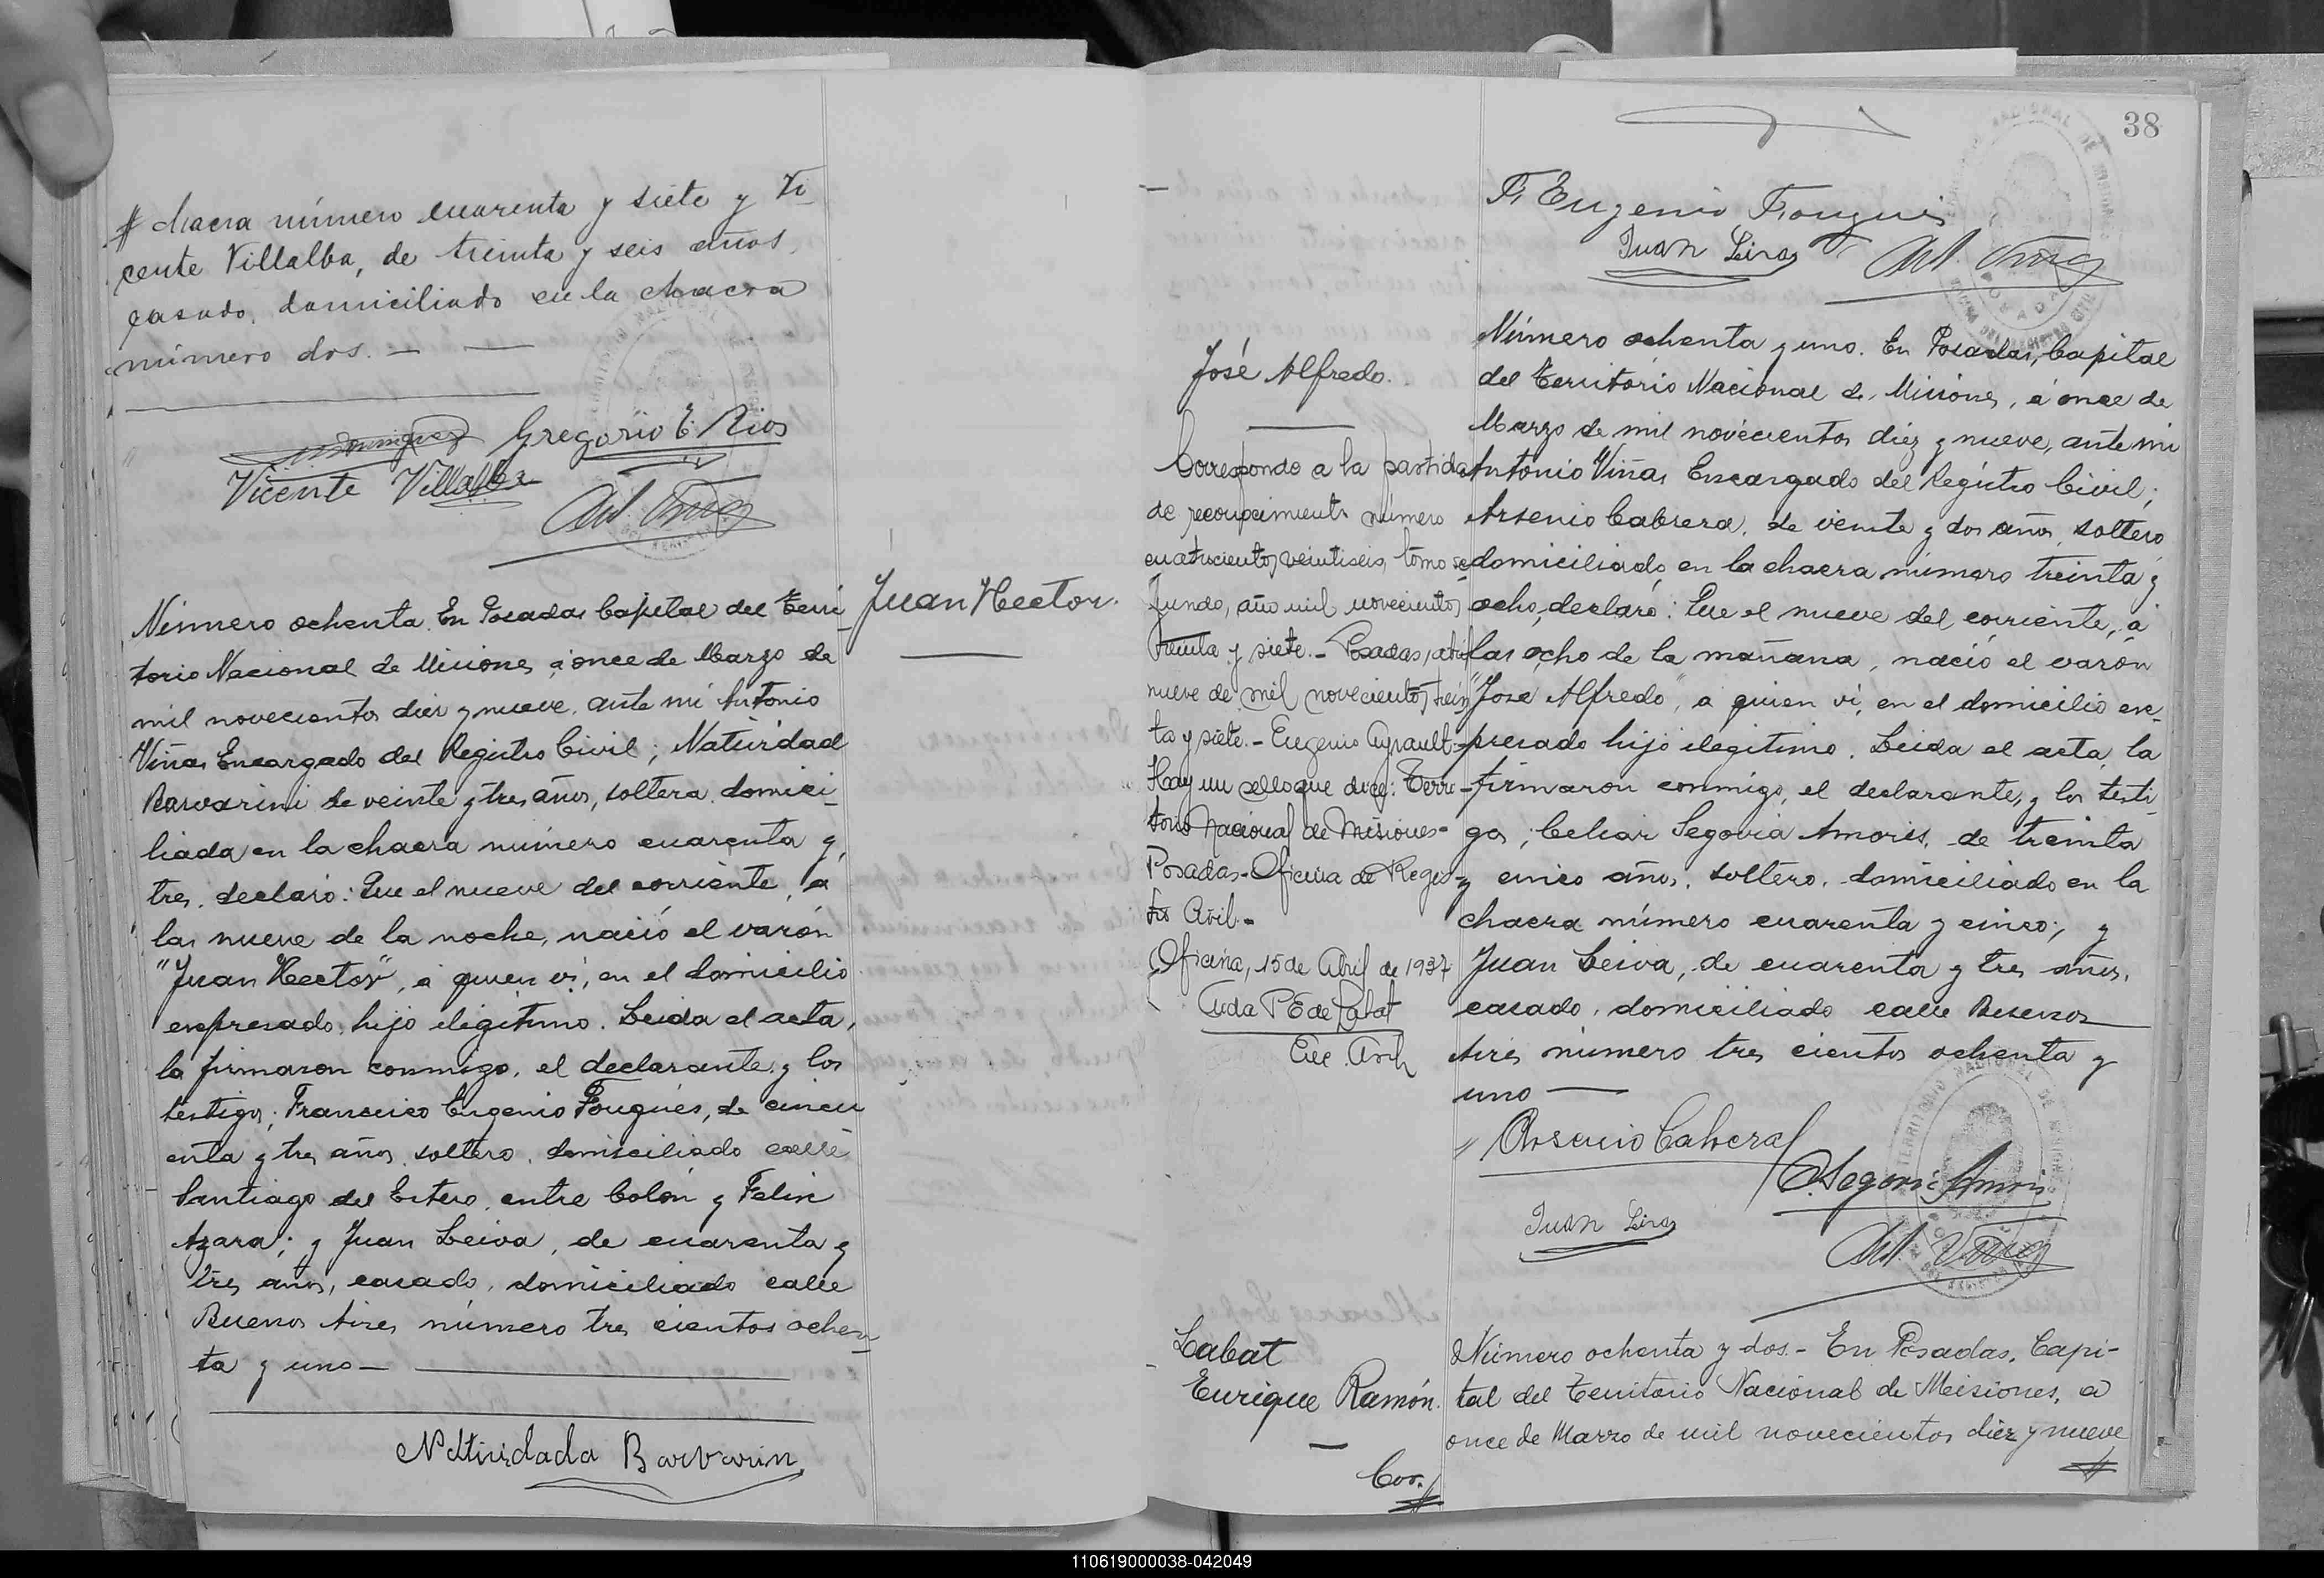 # chacra número cuarenta y siete y Vi
cente Villalba, de treinta y seis años,
casado, domiciliado en la chacra
número dos. —
Gregorio E. Rios
Vicente Villalba
Ant. Viñas
Juan Hector.
Número ochenta. En Posadas Capital del Terri
torio Nacional de Misiones, á once de Marzo de
mil novecientos diez y nueve, ante mi Antonio
Viñas Encargado del Registro Civil; Natividad
Barvarini de veinte y tres años, soltera, domici_
liada en la chacra número cuarenta y
tres, declaró: Que el nueve del corriente, a
las nueve de la noche, nació el varón
"Juan Hector", a quien ví, en el domicilio
expresado, hijo ilegitimo. Leida el acta,
la firmaron conmigo, el declarante y los
testigos; Francisco Eugenio Fougués, de cincu
enta y tres años, soltero, domiciliado calle
Santiago del Estero, entre Colón y Felix
Azara; y Juan Leiva, de cuarenta y
tres años, casado, domiciliado calle
Buenos Aires número tres cientos ochen_
ta y uno —
Natividada Barvarin
38
F. Eugenio Fougués
Juan Leiva
Ant. Viñas
José Alfredo.
Corresponde a la partida
de reconocimiento número
cuatrocientos veintiseis, tomo se
gundo, año mil novecientos
treinta y siete. - Posadas, abril
nueve de mil novecientos trein
ta y siete. - Eugenio Ayrault -
Hay un sello que dice: Terri-
torio Nacional de Misiones -
Posadas - Oficina de Regis-
tro Civil -
Oficina, 15 de Abril de 1937
Auda P E de Labat
Enc. Arch
Número ochenta y uno. En Posadas, Capital
del Territorio Nacional de Misiones, á once de
Marzo de mil novecientos diez y nueve, ante mi
Antonio Viñas Encargado del Registro Civil;
Arsenio Cabrera, de veinte y dos años, soltero
domiciliado en la chacra número treinta y
ocho, declaró: Que el nueve del corriente, a
las ocho de la mañana, nació el varón
"José Alfredo", a quien ví, en el domicilio ex_
presado hijo ilegitimo. Leida el acta, la
firmaron conmigo, el declarante, y los testi
gos; Celiar Segovia Amoris, de treinta
y cinco años, soltero, domiciliado en la
chacra número cuarenta y cinco; y
Juan Leiva, de cuarenta y tres años,
casado, domiciliado calle Buenos
Aires número tres cientos ochenta y
uno —
Arsenio Cabrera
C. Segovia Amoris
Juan Leiva
Ant. Viñas
Labat
Enrique Ramón.
Cor.
Número ochenta y dos. - En Posadas, Capi-
tal del Territorio Nacional de Misiones, a
once de Marzo de mil novecientos diez y nueve
110619000038-042049